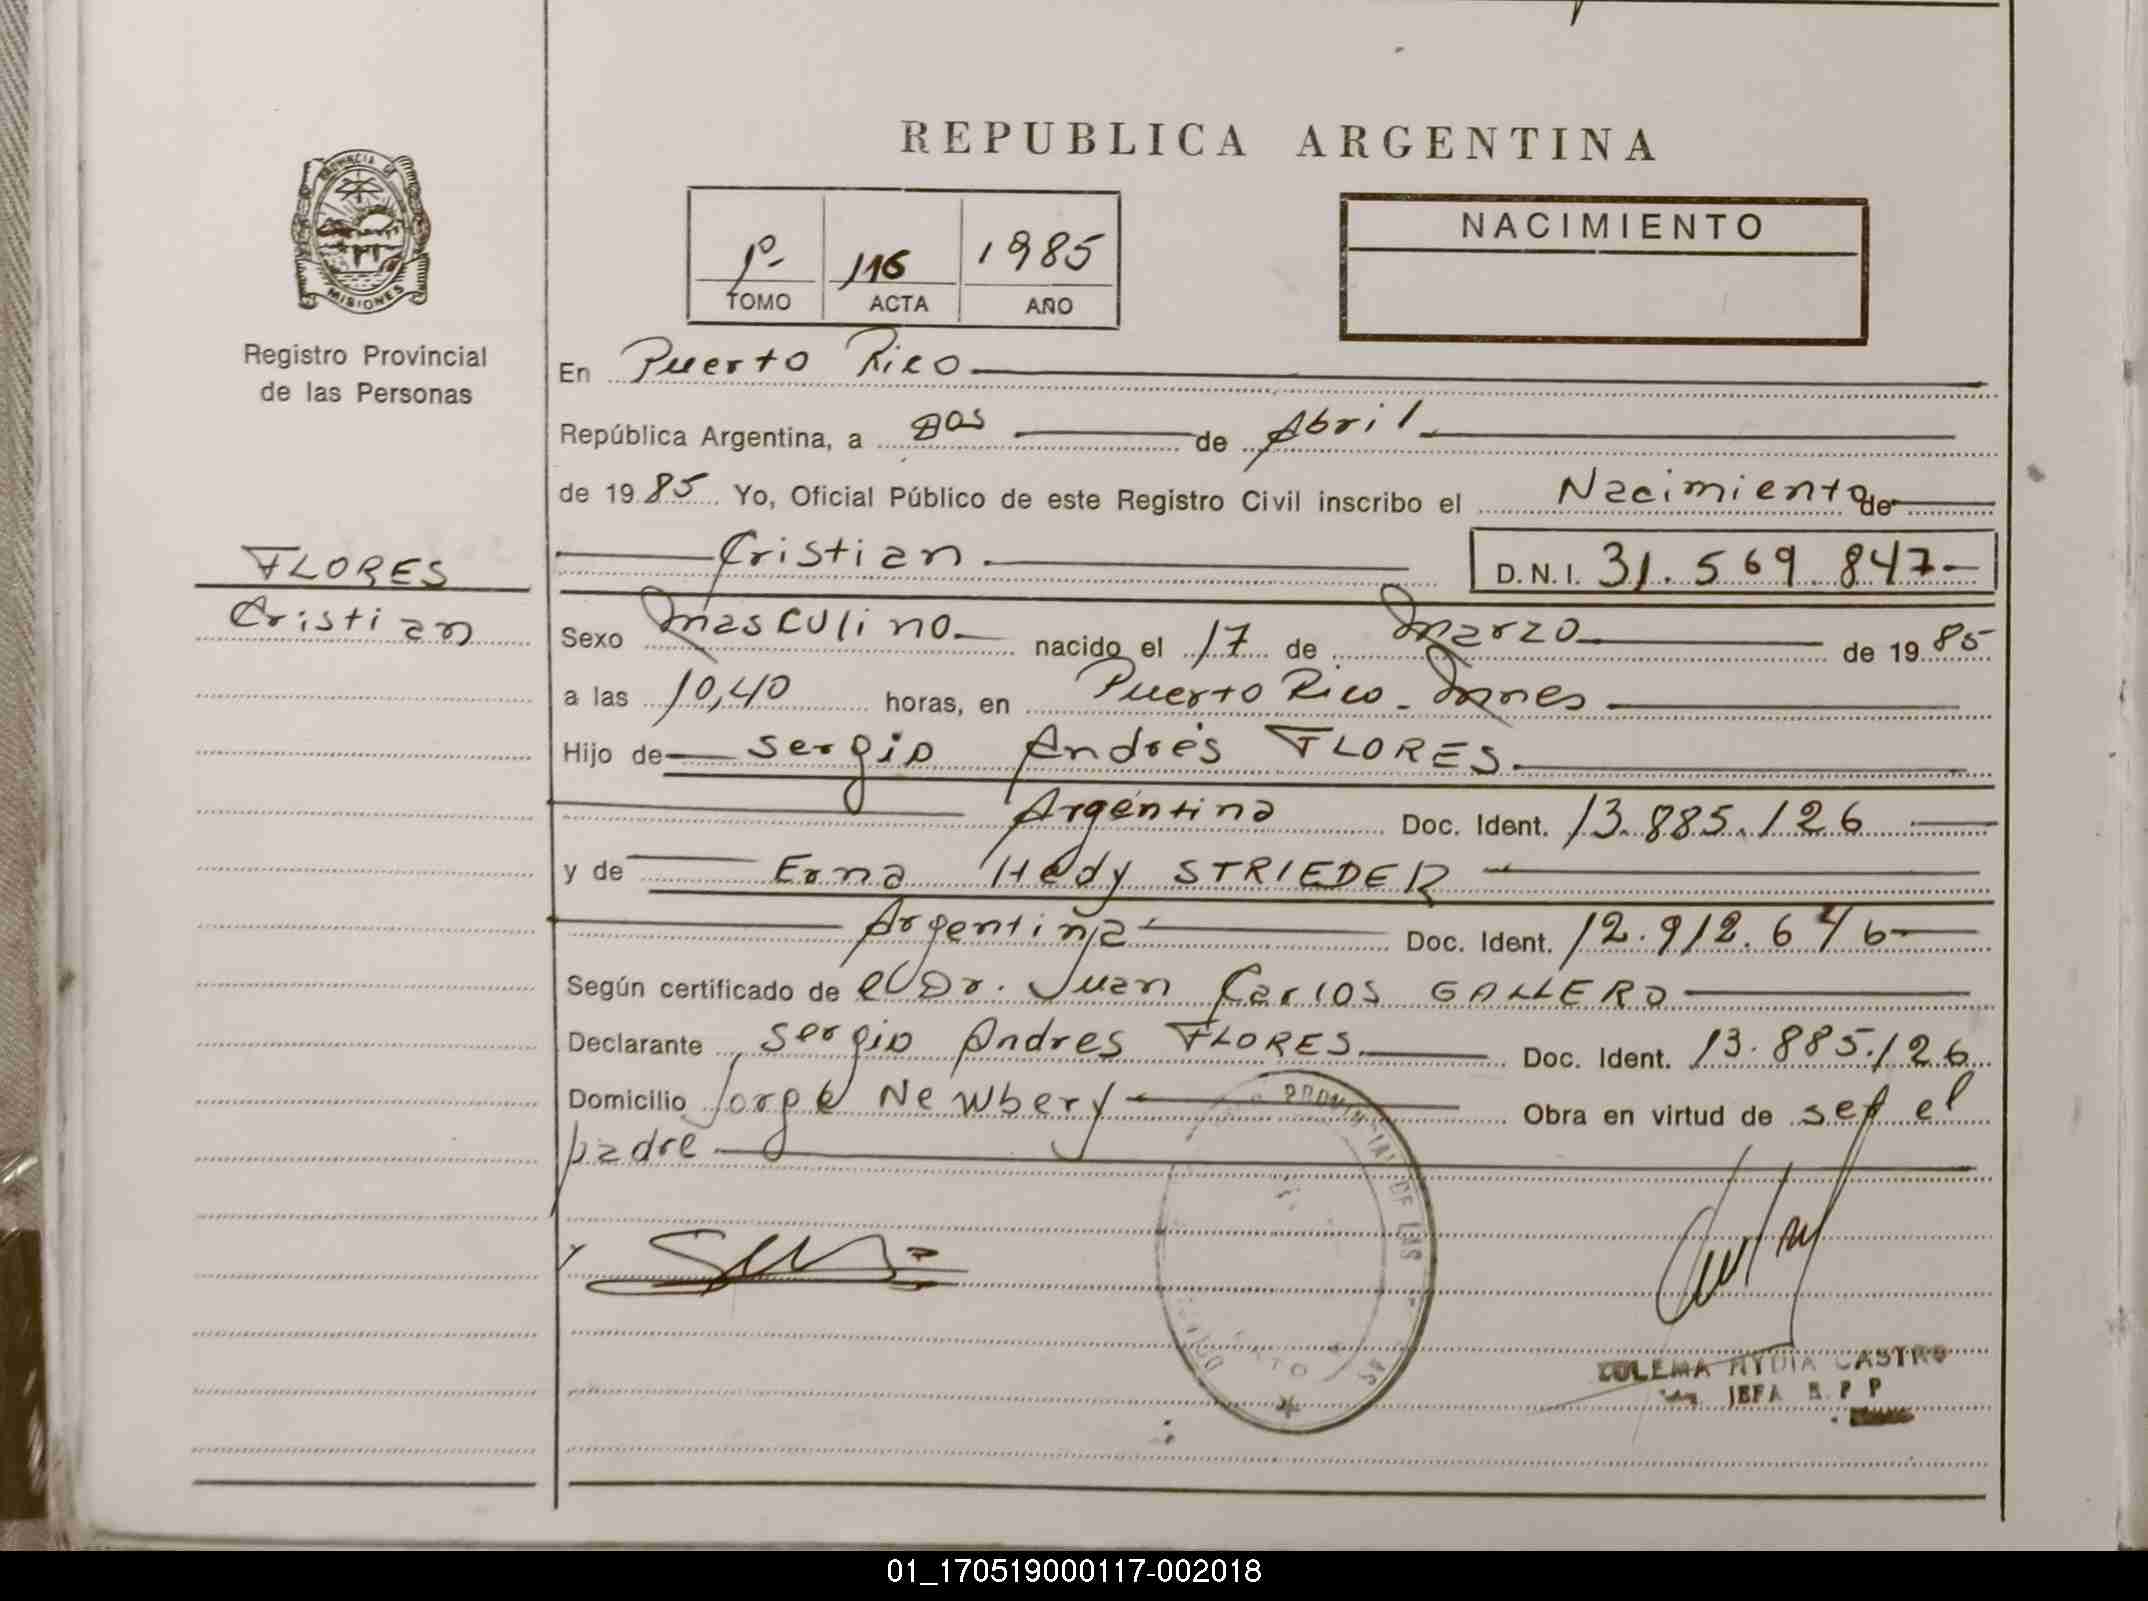 REPUBLICA ARGENTINA
PROVINCIA
MISIONES
Registro Provincial
de las Personas
1º- 116 1985
TOMO ACTA AÑO
NACIMIENTO
En Puerto Rico
República Argentina, a dos de Abril
de 1985 Yo, Oficial Público de este Registro Civil inscribo el Nacimiento de
FLORES
Cristian
Cristian D.N.I. 31.569.847-
Sexo Masculino nacido el 17 de Marzo de 1985
a las 10,40 horas, en Puerto Rico - Mnes
Hijo de Sergio Andrés FLORES
Argentina Doc. Ident. 13.885.126
y de Erna Hedy STRIEDER
Argentina Doc. Ident. 12.912.646
Según certificado de el Dr. Juan Carlos GALLERO
Declarante Sergio Andres FLORES Doc. Ident. 13.885.126
Domicilio Jorge Newbery Obra en virtud de ser el
padre
PROVINCIAL DE LAS
ZULEMA NYDIA CASTRO
JEFA R. P. P
01_170519000117-002018